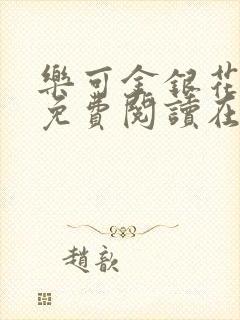 樂可金銀花
免費閱讀在
趙歆